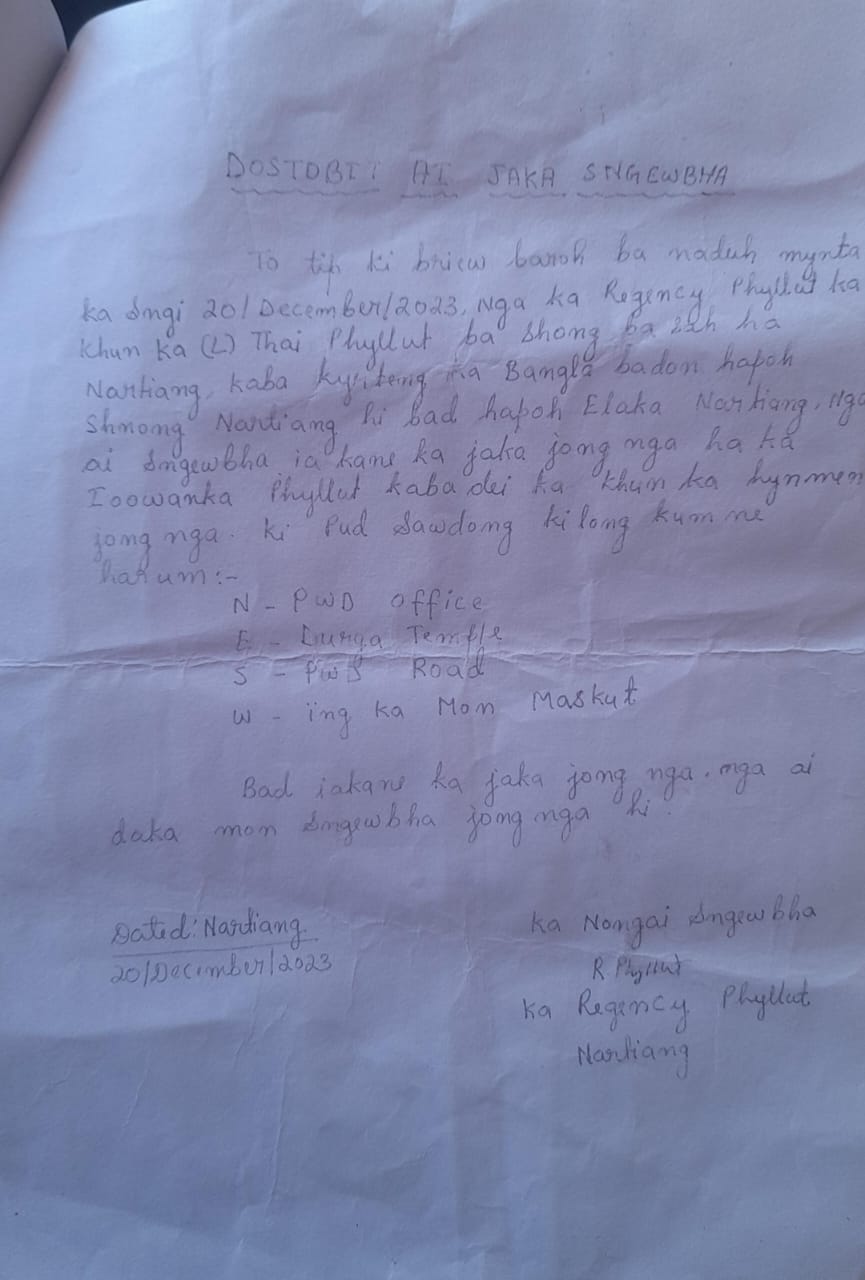 DOSTOBIT AI JAKA SNGEWBHA
To tip ki briew baroh ba naduh mynta
ka sngi 20/December/2023, Nga ka Regency Phyllut ka
khun ka (L) Thai Phyllut ba shong ba sah ha
Nartiang, kaba kyrteng ka Bangla badon hapoh
Shnong Nartiang hi bad hapoh Elaka Nartiang, Nga
ai sngewbha ia kane ka jaka jong nga ha ka
Ioowanka Phyllut kaba dei ka khun ka hynmen
jong nga. ki Pud sawdong ki long kumne
harum:-
N - PWD office
E - Durga Temple
S - PWD Road
W - ïng ka Mon Maskut
Bad iakane ka jaka jong nga. nga ai
daka mon sngewbha jong nga hi.
Dated: Nartiang
20/December/2023
Ka Nongai sngewbha
R Phyllut
Ka Regency Phyllut
Nartiang